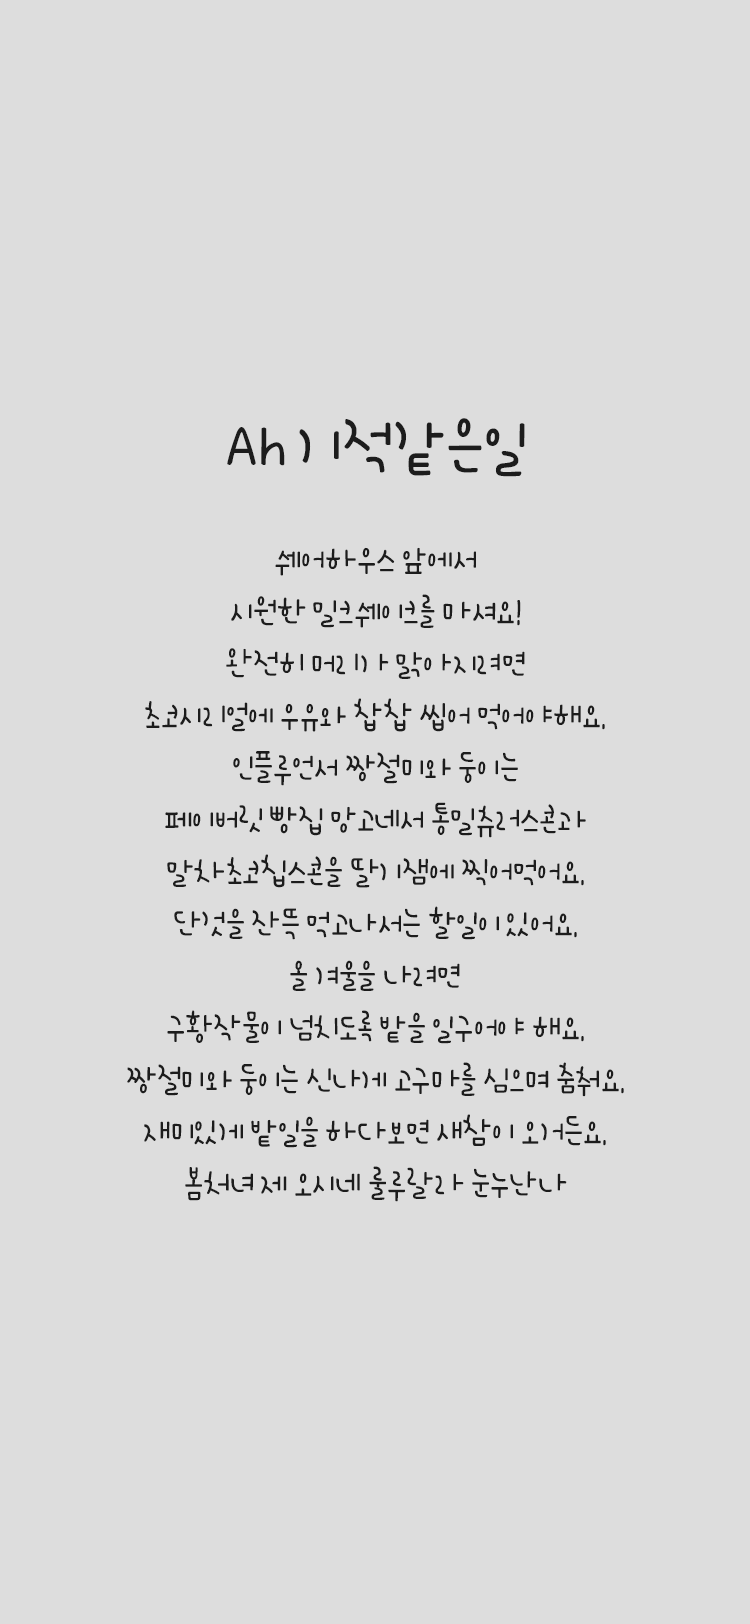 Ah기적같은일
쉐어하우스 앞에서
시원한 밀크쉐이크를 마셔요!
완전히 머리가 맑아지려면
초코시리얼에 우유와 찹찹 씹어 먹어야해요.
인플루언서 짱절미와 둥이는
페이버릿 빵집 망고네에서 통밀츄러스콘과
말차초코칩스콘을 딸기잼에 찍어먹어요.
단것을 잔뜩 먹고나서는 할일이있어요.
올 겨울을 나려면
구황작물이 넘치도록 밭을 일구어야 해요.
짱절미와 둥이는 신나게 고구마를 심으며 춤춰요.
재미있게 밭일을 하다보면 새참이 오거든요.
봄처녀 제 오시네 룰루랄라 눈누난나